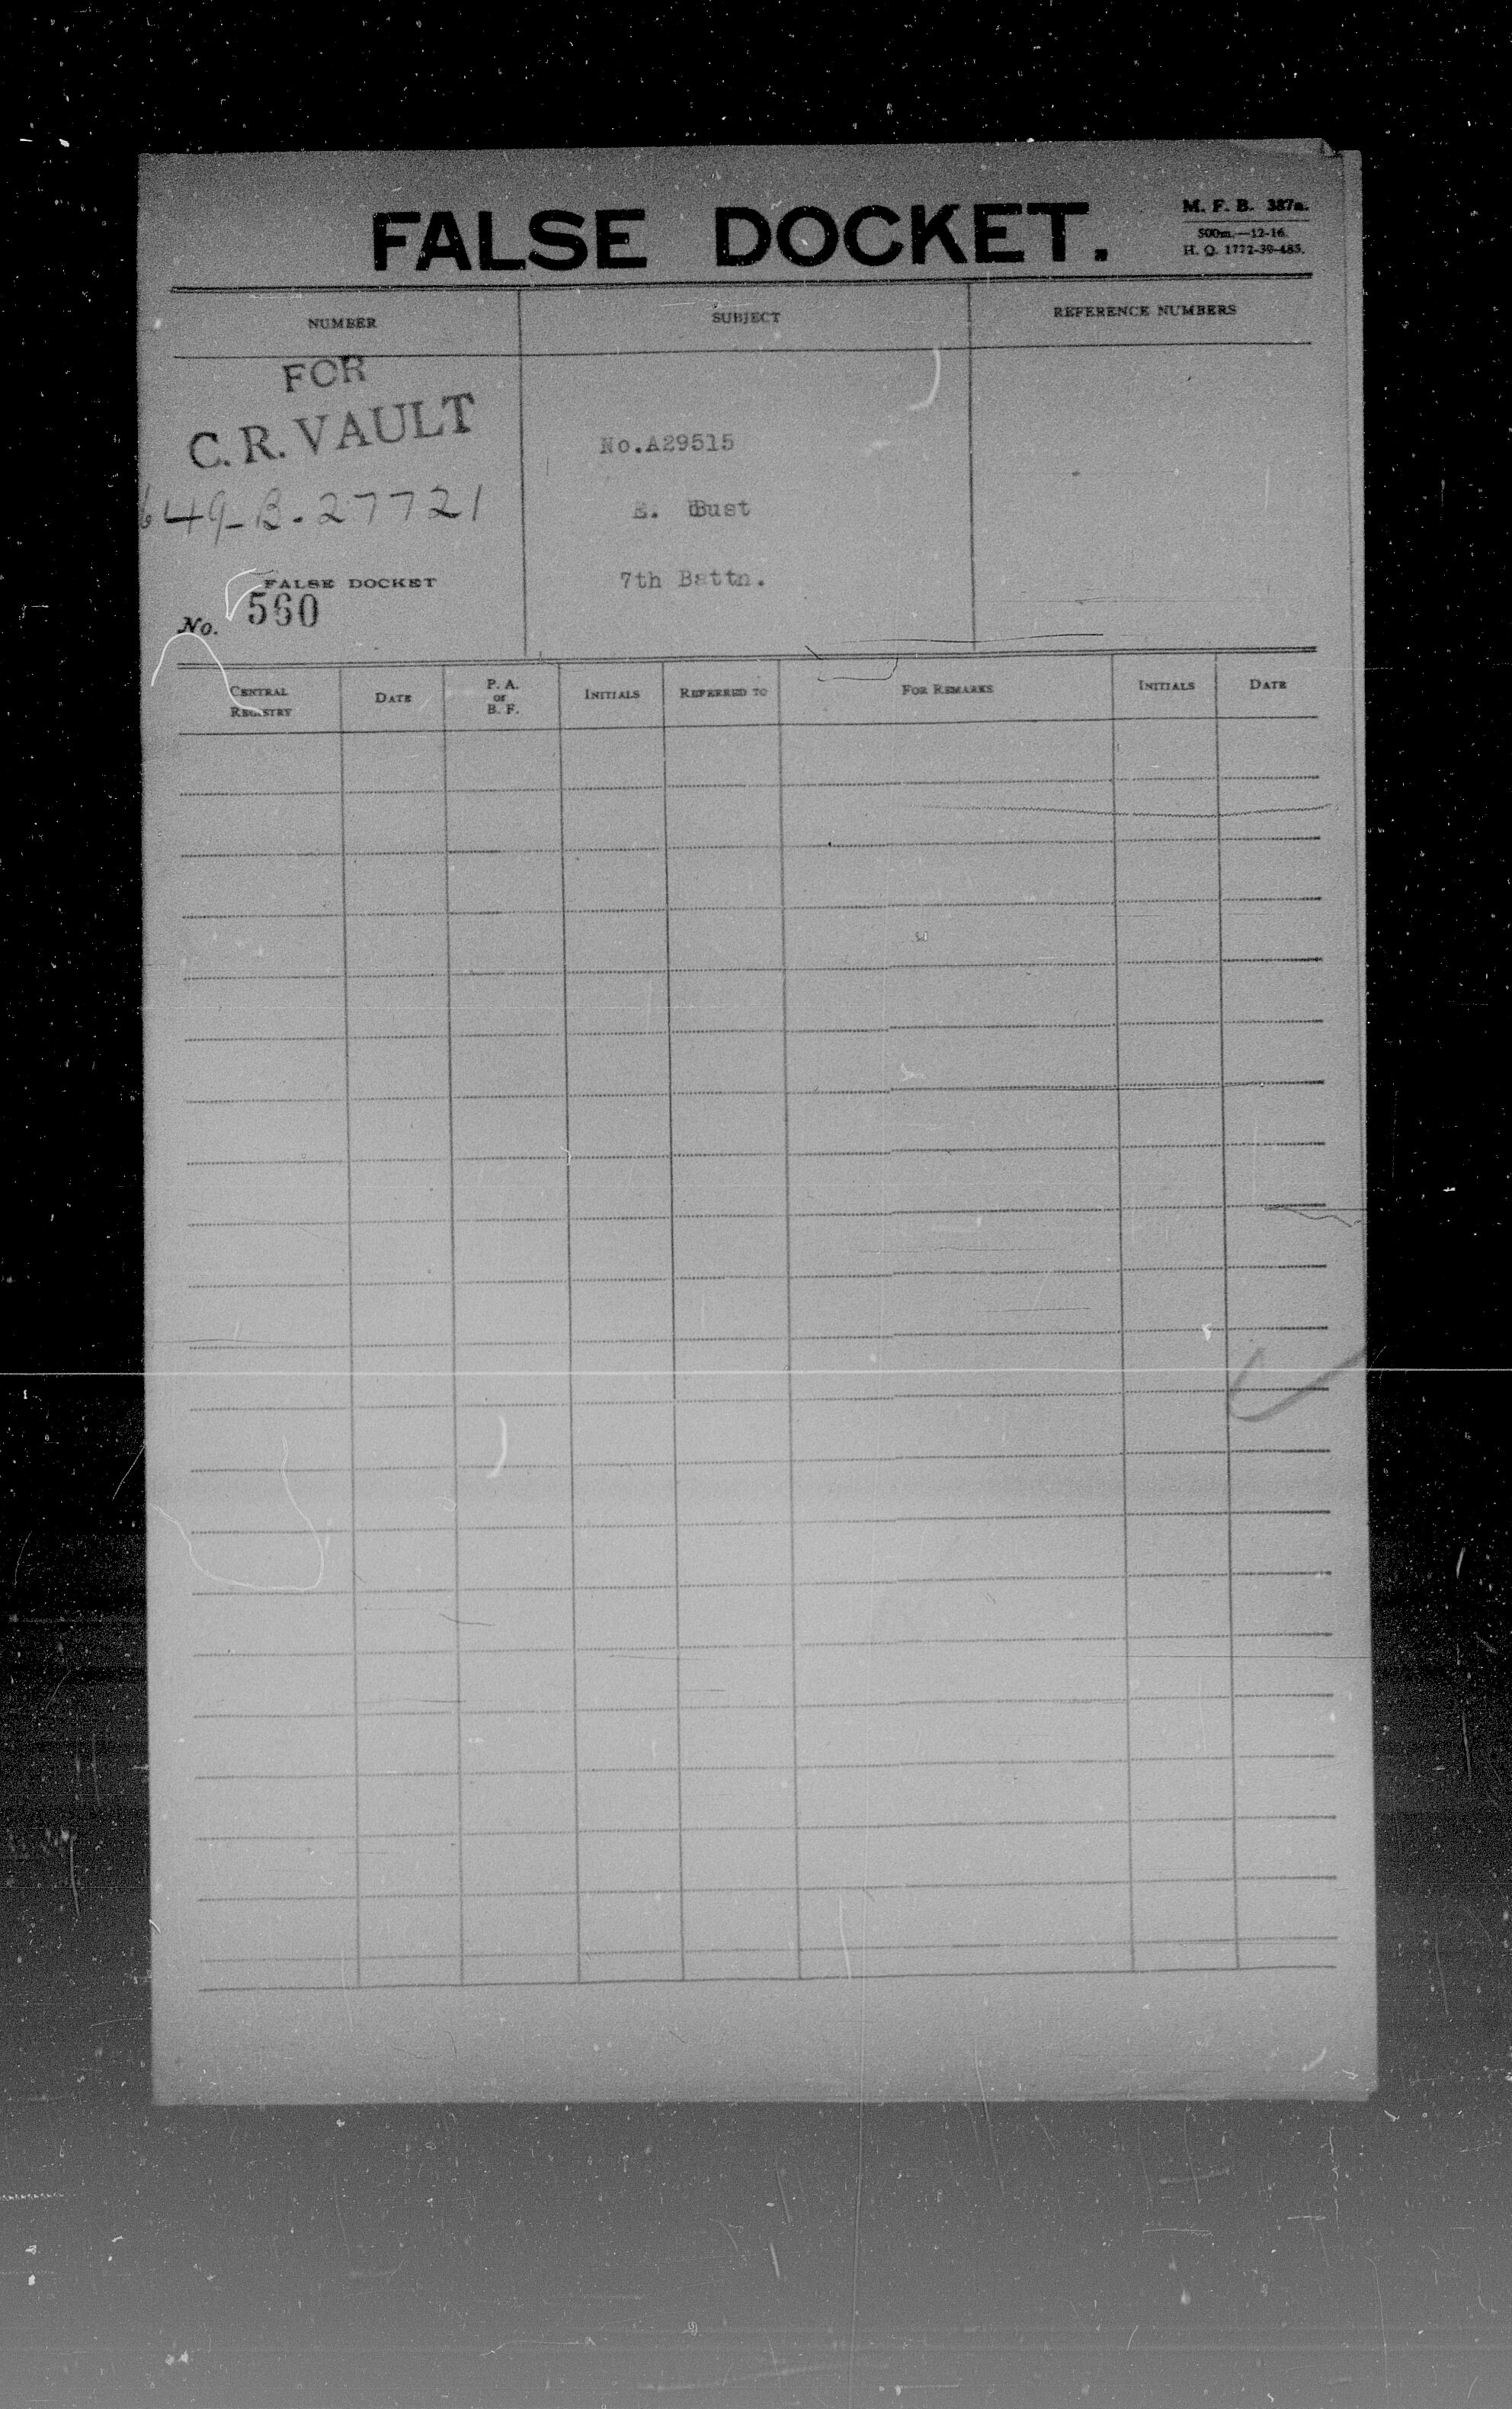 FALSE DOCKET.
M. F. B. 387a.
500m.—12-16.
H. Q. 1772-39-485.
NUMBER
SUBJECT
REFERENCE NUMBERS
FOR
C. R. VAULT
649-B-27721
FALSE DOCKET
No. 560
No.A29515
E. Bust
7th Battn.
CENTRAL REGISTRY
DATE
P. A. or B. F.
INITIALS
REFERRED TO
FOR REMARKS
INITIALS
DATE